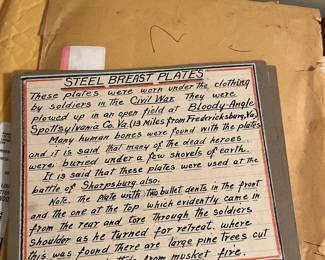 STEEL BREAST PLATES
These plates were worn under the clothing
by soldiers in the Civil War. They were
plowed up in an open field at Bloody-Angle
Spottsylvania Co. Va. (13 Miles from Fredericksburg, Va)
Many human bones were found with the plates
and it is said that many of the dead heroes
were buried under a few shovels of earth.
It is said that these plates were used at the
battle of Sharpsburg also.
Note, the plate with two bullet dents in the front
and the one at the top which evidently came in
from the rear and tore through the soldiers
shoulder as he turned for retreat. where
this was found there are large pine trees cut
from musket fire.